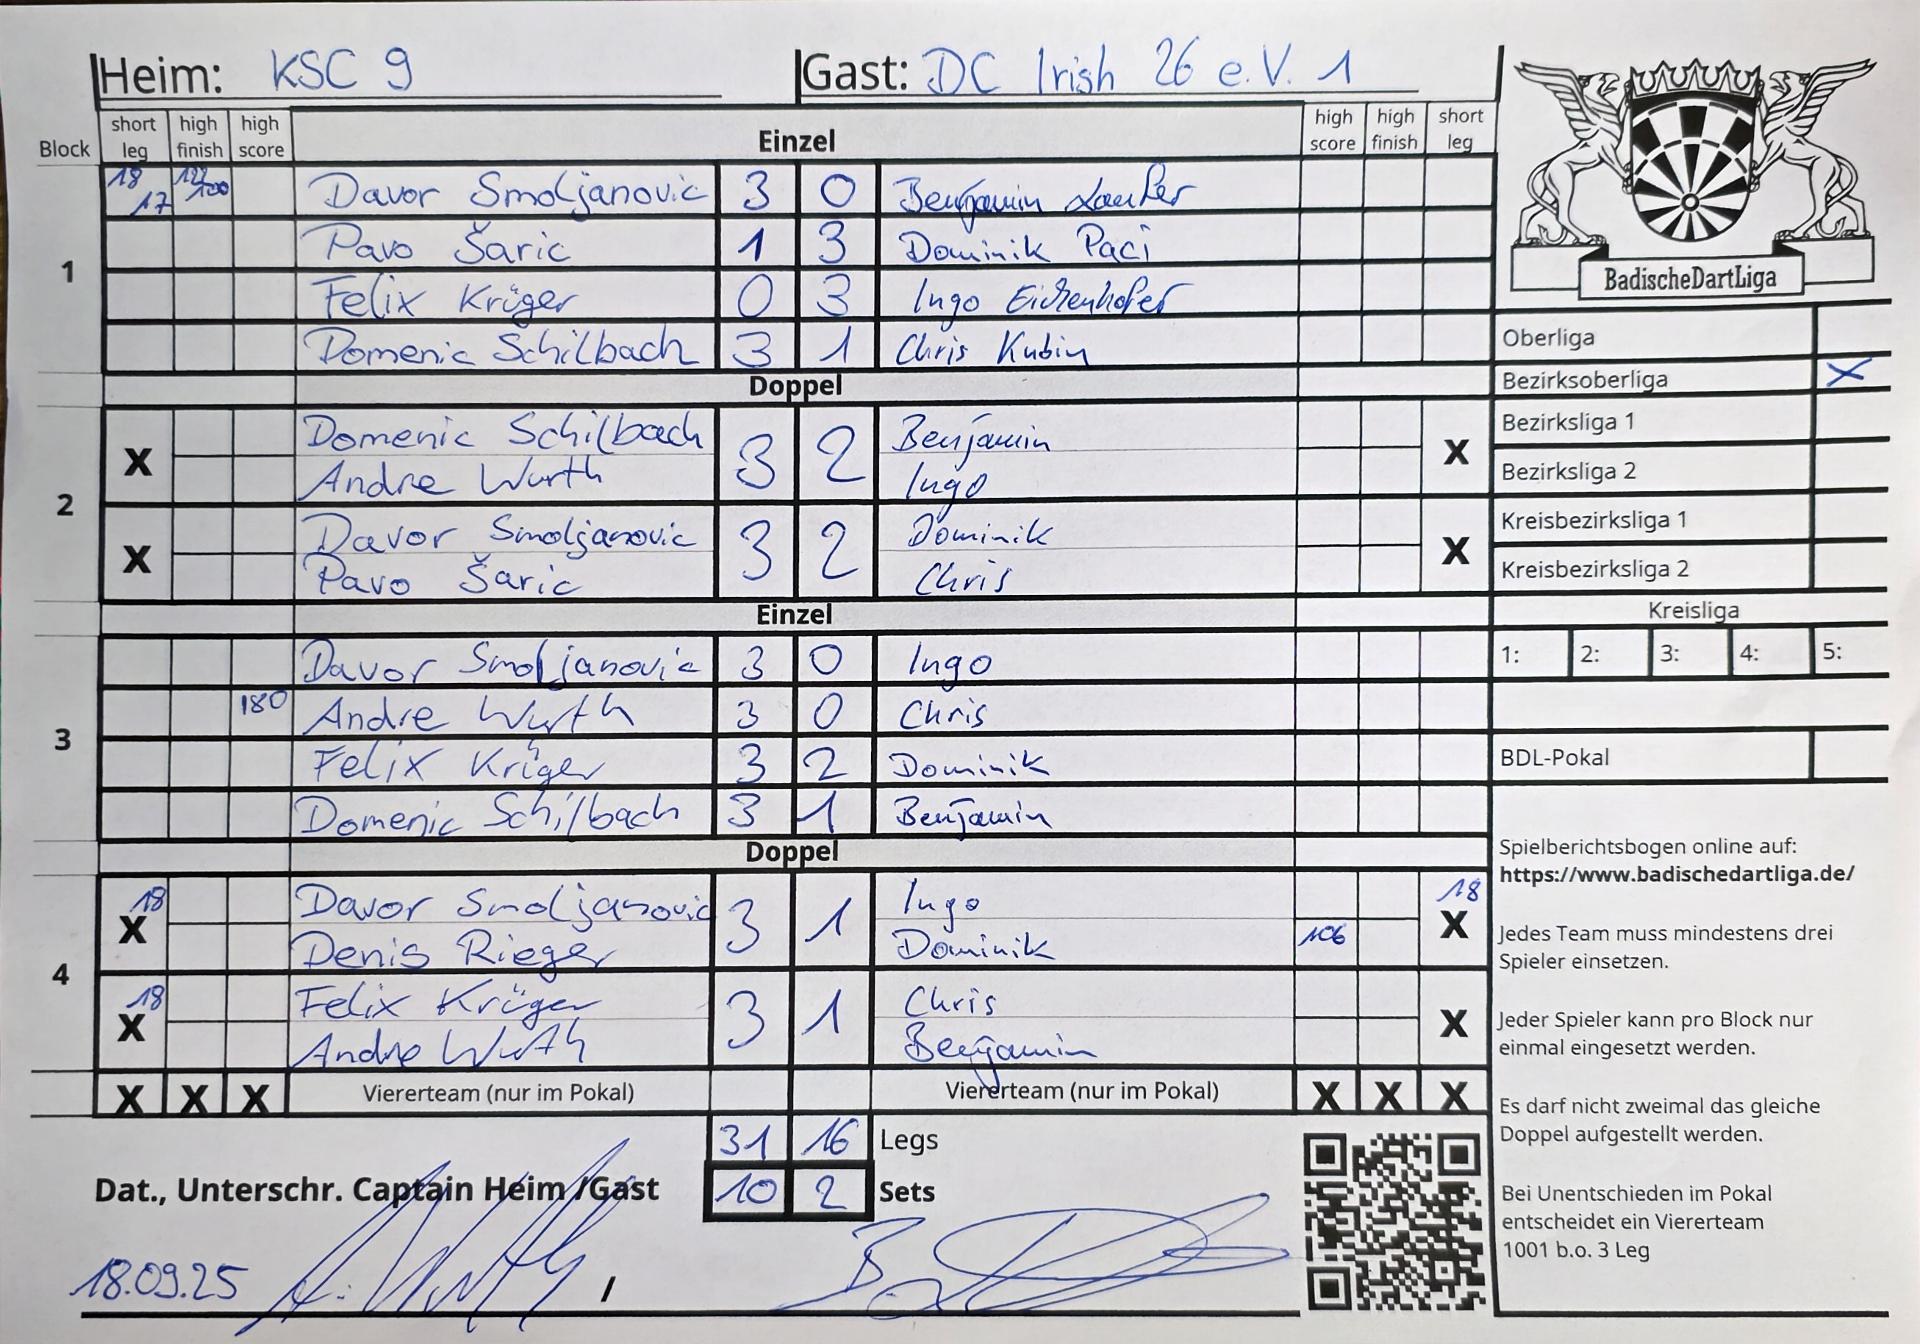 Heim: KSC 9 Gast: DC Irish 26 e.V. 1
Block short leg high finish high score Einzel high score high finish short leg
1
18 17 122 100 Davor Smoljanovic 3 0 Benjamin Laufer
Pavo Šaric 1 3 Dominik Paci
Felix Krüger 0 3 Ingo Eichenhofer
Domenic Schilbach 3 1 Chris Kubin
Doppel
2
X Domenic Schilbach 3 2 Benjamin X
Andre Wurth Ingo
X Davor Smoljanovic 3 2 Dominik X
Pavo Šaric Chris
Einzel
3
Davor Smoljanovic 3 0 Ingo
180 Andre Wurth 3 0 Chris
Felix Krüger 3 2 Dominik
Domenic Schilbach 3 1 Benjamin
Doppel
4
18 X Davor Smoljanovic 3 1 Ingo 18 X
Denis Rieger Dominik 106
18 X Felix Krüger 3 1 Chris X
Andre Wurth Benjamin
X X X Viererteam (nur im Pokal) Viererteam (nur im Pokal) X X X
31 16 Legs
Dat., Unterschr. Captain Heim /Gast 10 2 Sets
18.09.25 /
BadischeDartLiga
Oberliga
Bezirksoberliga X
Bezirksliga 1
Bezirksliga 2
Kreisbezirksliga 1
Kreisbezirksliga 2
Kreisliga
1: 2: 3: 4: 5:
BDL-Pokal
Spielberichtsbogen online auf:
https://www.badischedartliga.de/
Jedes Team muss mindestens drei
Spieler einsetzen.
Jeder Spieler kann pro Block nur
einmal eingesetzt werden.
Es darf nicht zweimal das gleiche
Doppel aufgestellt werden.
Bei Unentschieden im Pokal
entscheidet ein Viererteam
1001 b.o. 3 Leg